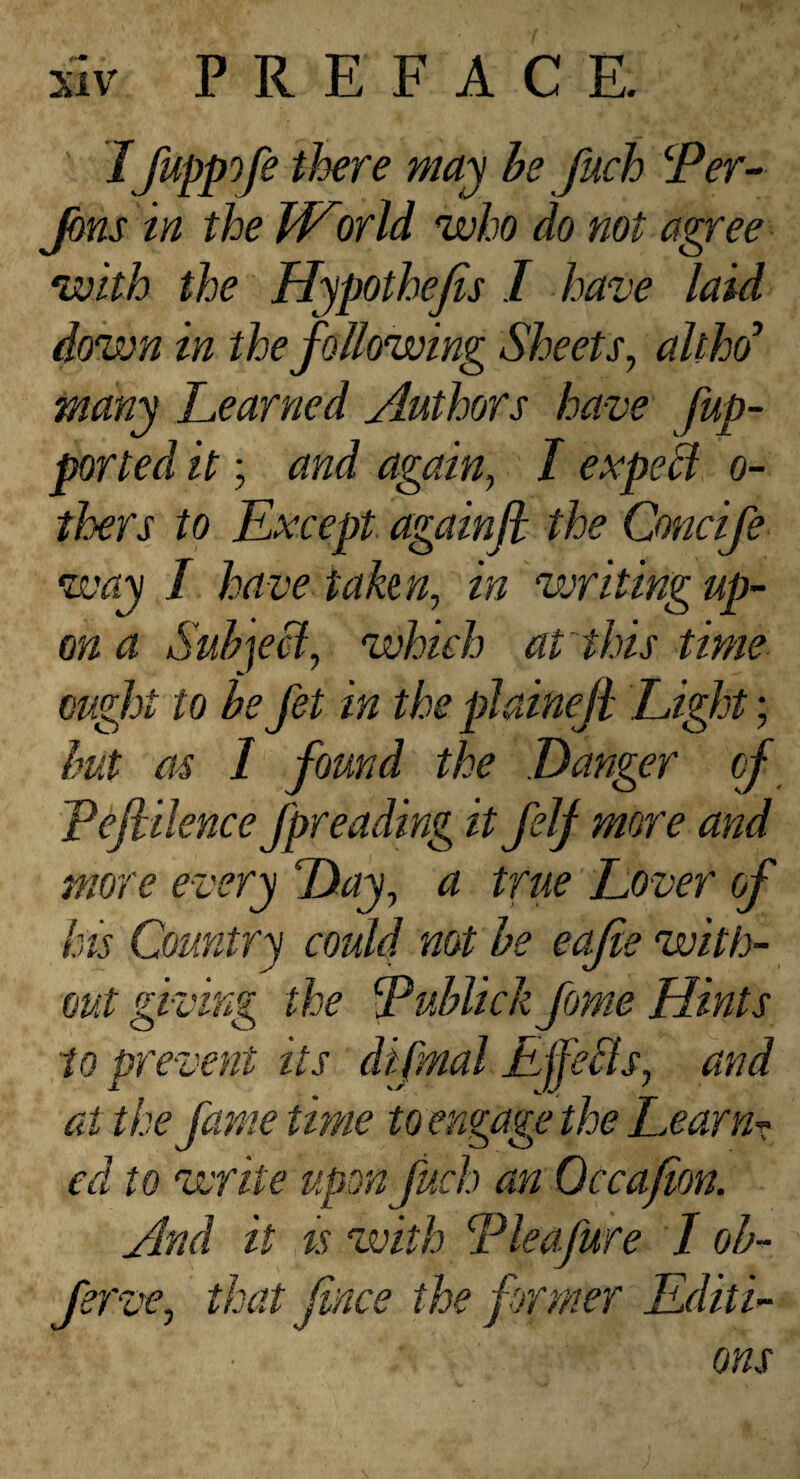 xiv PREFACE.
I ſuppoſe there may be ſuch Per-
ſons in the World who do not agree
with the Hypotheſis I have laid
down in the following Sheets, altho'
many Learned Authors have ſup-
ported it; and again, I expect o-
thers to Except againſt the Conciſe
way I have taken, in writing up-
on a Subject, which at this time
ought to be ſet in the plaineſt Light;
but as I found the Danger of
Peſtilence ſpreading it ſelf more and
more every Day, a true Lover of
his Country could not be eaſie with-
out giving the Publick ſome Hints
to prevent its diſmal Effects, and
at the ſame time to engage the Learn-
ed to write upon ſuch an Occaſion.
And it is with Pleaſure I ob-
ſerve, that ſince the former Editi-
ons